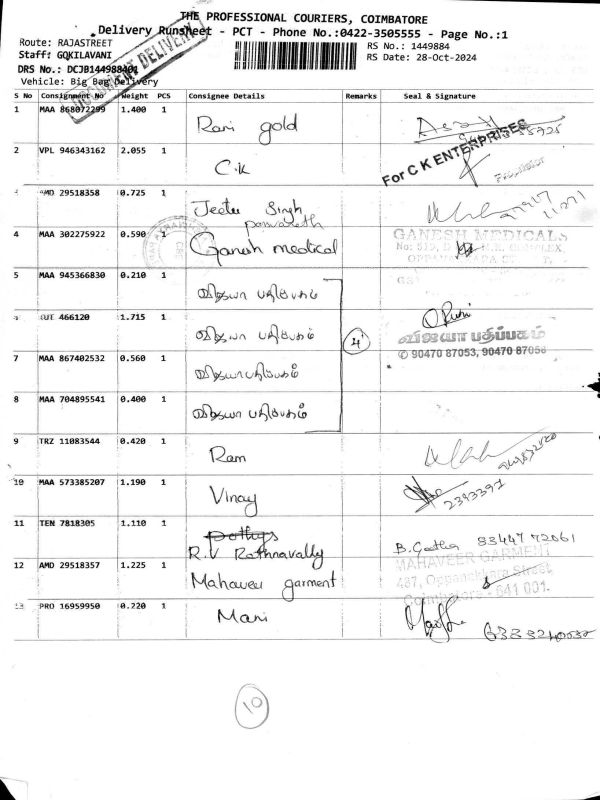 THE PROFESSIONAL COURIERS, COIMBATORE
Delivery Runsheet - PCT - Phone No.:0422-3505555 - Page No.:1
Route: RAJASTREET
RS No.: 1449884
Staff: GOKILAVANI
RS Date: 28-Oct-2024
DRS No.: DCJB144988401
Vehicle: Big Bag Delivery
DOCUMENT DELIVERY
S No Consignment No Weight PCS Consignee Details Remarks Seal & Signature
1 MAA 868072299 1.400 1 Ravi gold
2 VPL 946343162 2.055 1 C.K For C K ENTERPRISES Proprietor
AMD 29518358 0.725 1 Jeetu Singh
4 MAA 302275922 0.590 1 Ganesh medical GANESH MEDICALS
5 MAA 945366830 0.210 1 விஜயா பதிப்பகம்
466120 1.715 1 விஜயா பதிப்பகம் 4 விஜயா பதிப்பகம்
✆ 90470 87053, 90470 87058
7 MAA 867402532 0.560 1 விஜயா பதிப்பகம்
8 MAA 704895541 0.400 1 விஜயா பதிப்பகம்
9 TRZ 11083544 0.420 1 Ram
10 MAA 573385207 1.190 1 Vinay 2393391
11 TEN 7818305 1.110 1 pothys
R.V Rathnavally B. Geetha 83447 72061
12 AMD 29518357 1.225 1 Mahaveer garment MAHAVEER GARMENT
487, Oppanakkara Street,
Coimbatore - 641 001.
13 PRO 16959950 0.220 1 Mani
10